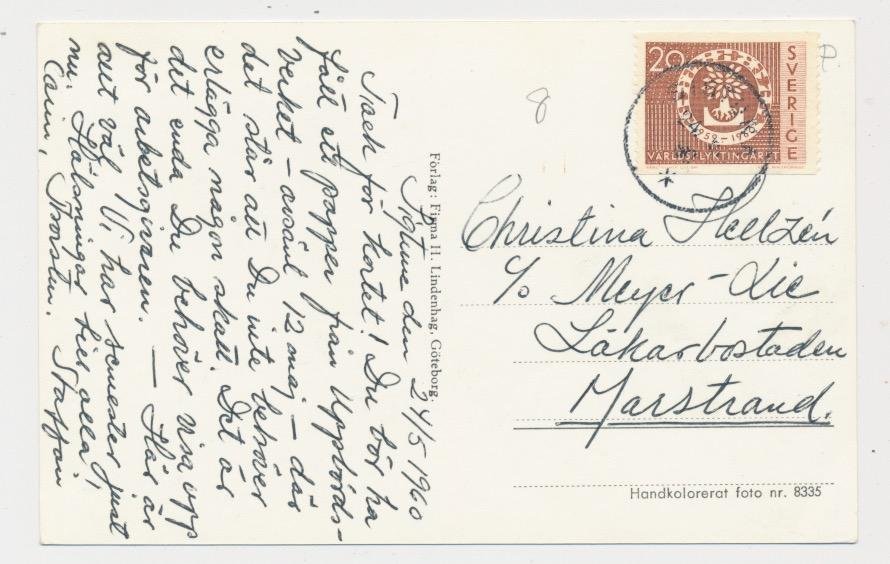 Sigtuna den 24/5 1960
Tack för kortet! Du bör ha
fått ett papper från Uppbörds-
verket – avsänt 12 maj – där
det står att Du inte behöver
erlägga någon skatt. Det är
det enda Du behöver visa upp
för arbetsgivaren. — Här är
allt väl. Vi har semester just
nu. Hälsningar till er alla,
Carin, Torsten, Staffan
Förlag: Firma H. Lindenhag, Göteborg.
8
P.
20
SVERIGE
1959–1960
VÄRLDSFLYKTINGÅRET
Christina Hellzén
c/o Meyer-Lie
Läkarbostaden
Marstrand.
Handkolorerat foto nr. 8335